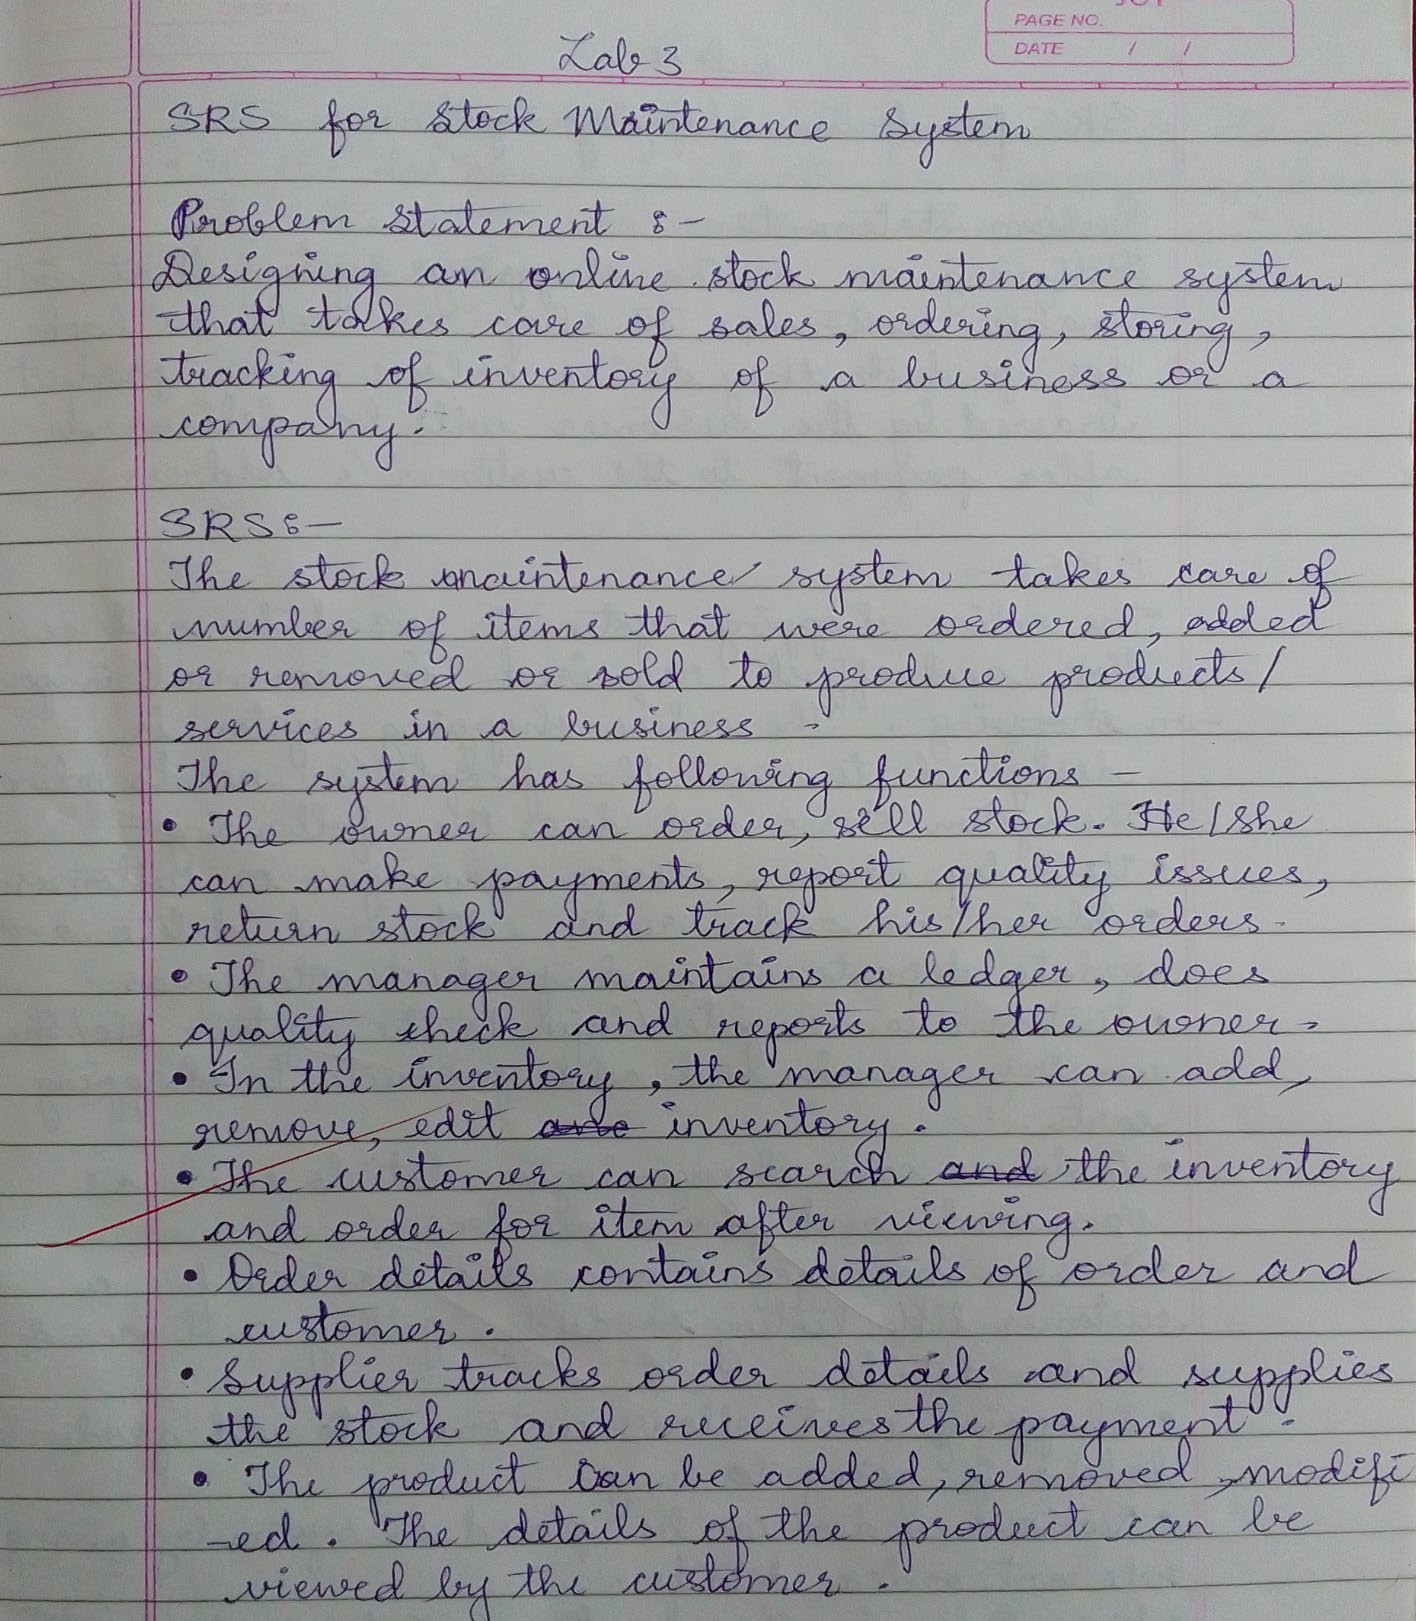 PAGE NO.
DATE / /
Lab 3
SRS for Stock Maintenance System
Problem Statement :-
Designing an online stock maintenance system
that takes care of sales, ordering, storing,
tracking of inventory of a business or a
company.
SRS :-
The stock maintenance system takes care of
number of items that were ordered, added
or removed or sold to produce products/
services in a business -
The system has following functions -
• The owner can order, sell stock. He/she
can make payments, report quality issues,
return stock and track his/her orders.
• The manager maintains a ledger, does
quality check and reports to the owner.
• In the inventory, the manager can add,
remove, edit inventory.
• The customer can search and the inventory
and order for item after viewing.
• Order details contains details of order and
customer.
• Supplier tracks order details and supplies
the stock and receives the payment.
• The product can be added, removed, modifi
-ed. The details of the product can be
viewed by the customer.